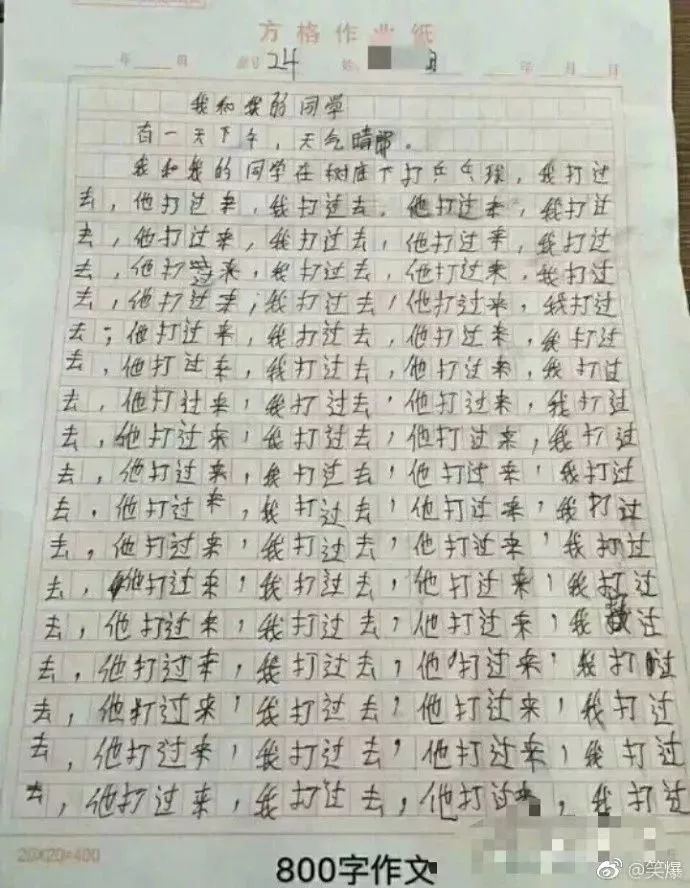 方格作业纸
年 月 24 年 月 日
我和我的同学
有一天下午，天气晴朗。
我和我的同学在树底下打乒乓球，我打过
去，他打过来，我打过去，他打过来，我打过
去，他打过来，我打过去，他打过来，我打过
去，他打过来，我打过去，他打过来，我打过
去，他打过来，我打过去，他打过来，我打过
去，他打过来，我打过去，他打过来，我打过
去，他打过来，我打过去，他打过来，我打过
去，他打过来，我打过去，他打过来，我打过
去，他打过来，我打过去，他打过来，我打过
去，他打过来，我打过去，他打过来，我打过
去，他打过来，我打过去，他打过来，我打过
去，他打过来，我打过去，他打过来，我打过
去，他打过来，我打过去，他打过来，我打过
去，他打过来，我打过去，他打过来，我过
去，他打过来，我打过去，他打过来，我打过
去，他打过来，我打过去，他打过来，我打过
去，他打过来，我打过去，他打过来，我打过
去，他打过来，我打过去，他打过来，我打过
20X20=400
800字作文
@笑爆